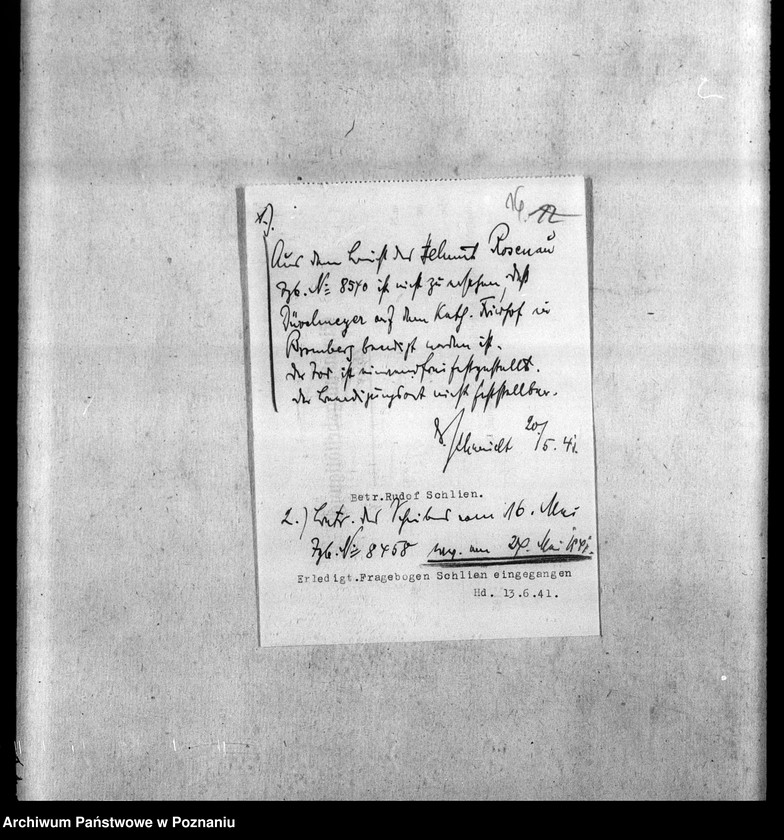 16. 12
1.).
Aus dem Bericht des Helmut Rosenau
Tgb. № 8540 ist nicht zu ersehen, daß
Düvelmeyer auf dem Kath. Friedhof in
Bromberg beerdigt worden ist.
Der Tod ist einwandfrei festgestellt.
Der Beerdigungsort nicht feststellbar.
Schmidt 20/5. 41.
Betr.Rudof Schlien.
2.) Betr. des Schreibens vom 16. Mai
Tgb. № 8458 am 24. Mai 1941.
Erledigt.Fragebogen Schlien eingegangen
Hd. 13.6.41.
Archiwum Państwowe w Poznaniu